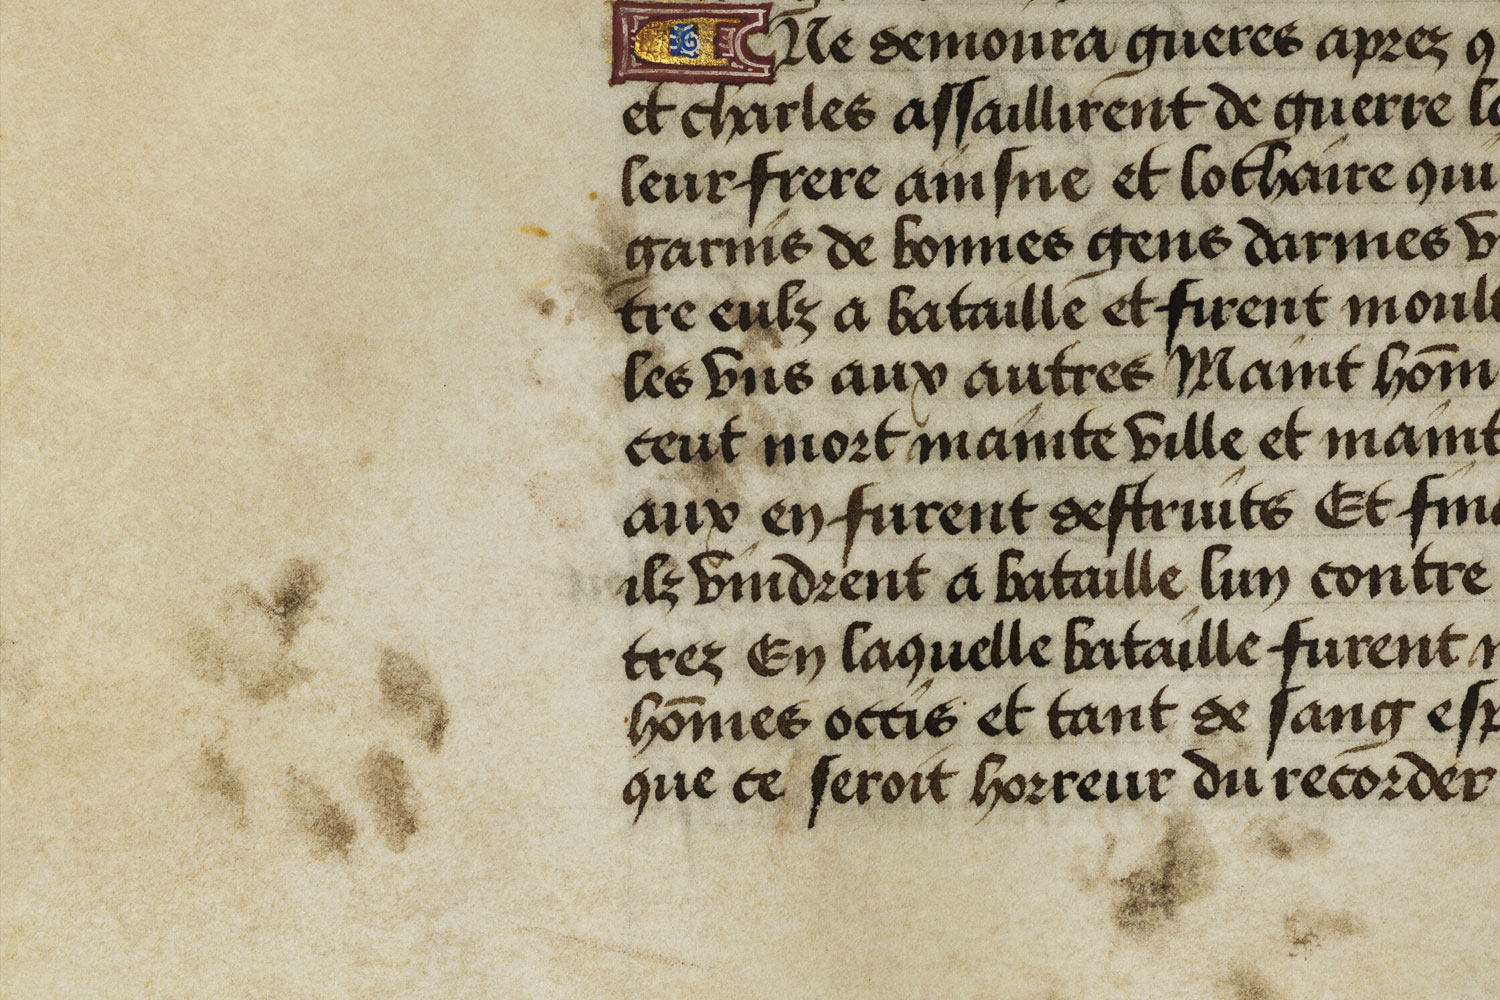 Ne demoura gueres aprez q
et charles assaillirent de guerre lo
leur frere ainsne et lothaire qui
garnis de bonnes gens darmes v
tre eulz a bataille et firent moult
les vns aux autres Maint hom̄
ceut mort mainte ville et maint
aux en furent destruits Et fina
ilz vindrent a bataille lun contre
trez En laquelle bataille furent
hom̄es occis et tant de sang esp
que ce seroit horreur du recorder